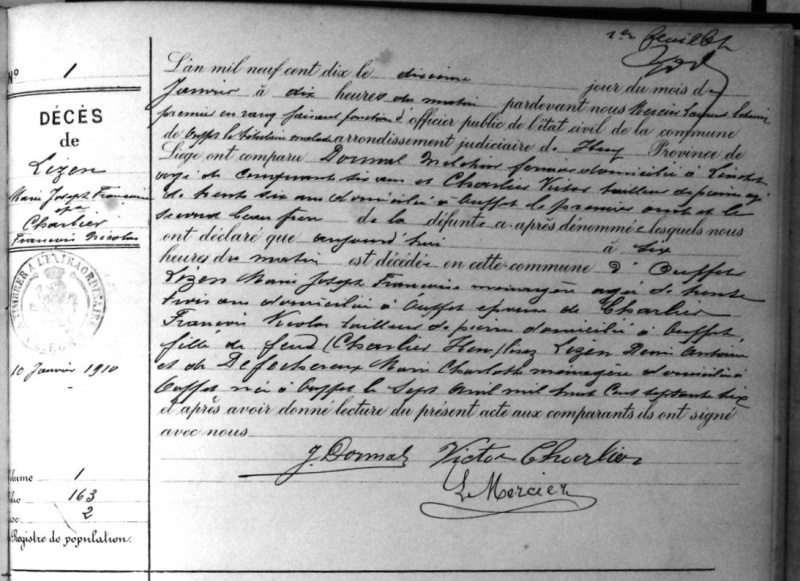 1er feuillet
N° 1
DÉCÈS
de
Lizen
Marie Joseph Françoise
Charlier
François Nicolas
A TIMBRER A L'EXTRAORDINAIRE
10 Janvier 1910
Volume 1
163
2
Registre de population.
L'an mil neuf cent dix le dixième
jour du mois de
Janvier à dix heures du matin pardevant nous Mercier Laurent
premier en rang faisant fonction d'officier public de l'état civil de la commune
de Ouffet le titulaire malade arrondissement judiciaire de Huy Province de
Liége ont comparu Dormal Melchior fermier domicilié à
agé de cinquante six ans et Charlier Victor tailleur de pierres agé
de trente six ans domicilié à Ouffet le premier oncle et le
second beau frère de la défunte ci après dénommée lesquels nous
ont déclaré que aujourd'hui à six
heures du matin est décédée en cette commune d'Ouffet
Lizen Marie Joseph Françoise ménagère agée de trente
trois ans domiciliée à Ouffet épouse de Charlier
François Nicolas tailleur de pierres domicilié à Ouffet
fille de feu (Charlier Hen) lisez Lizen Denis Antoine
et de Defechereux Marie Charlotte ménagère domiciliée à
Ouffet née à Ouffet le sept avril mil huit cent septante six
et après avoir donné lecture du présent acte aux comparants ils ont signé
avec nous
J. Dormal Victor Charlier
L Mercier